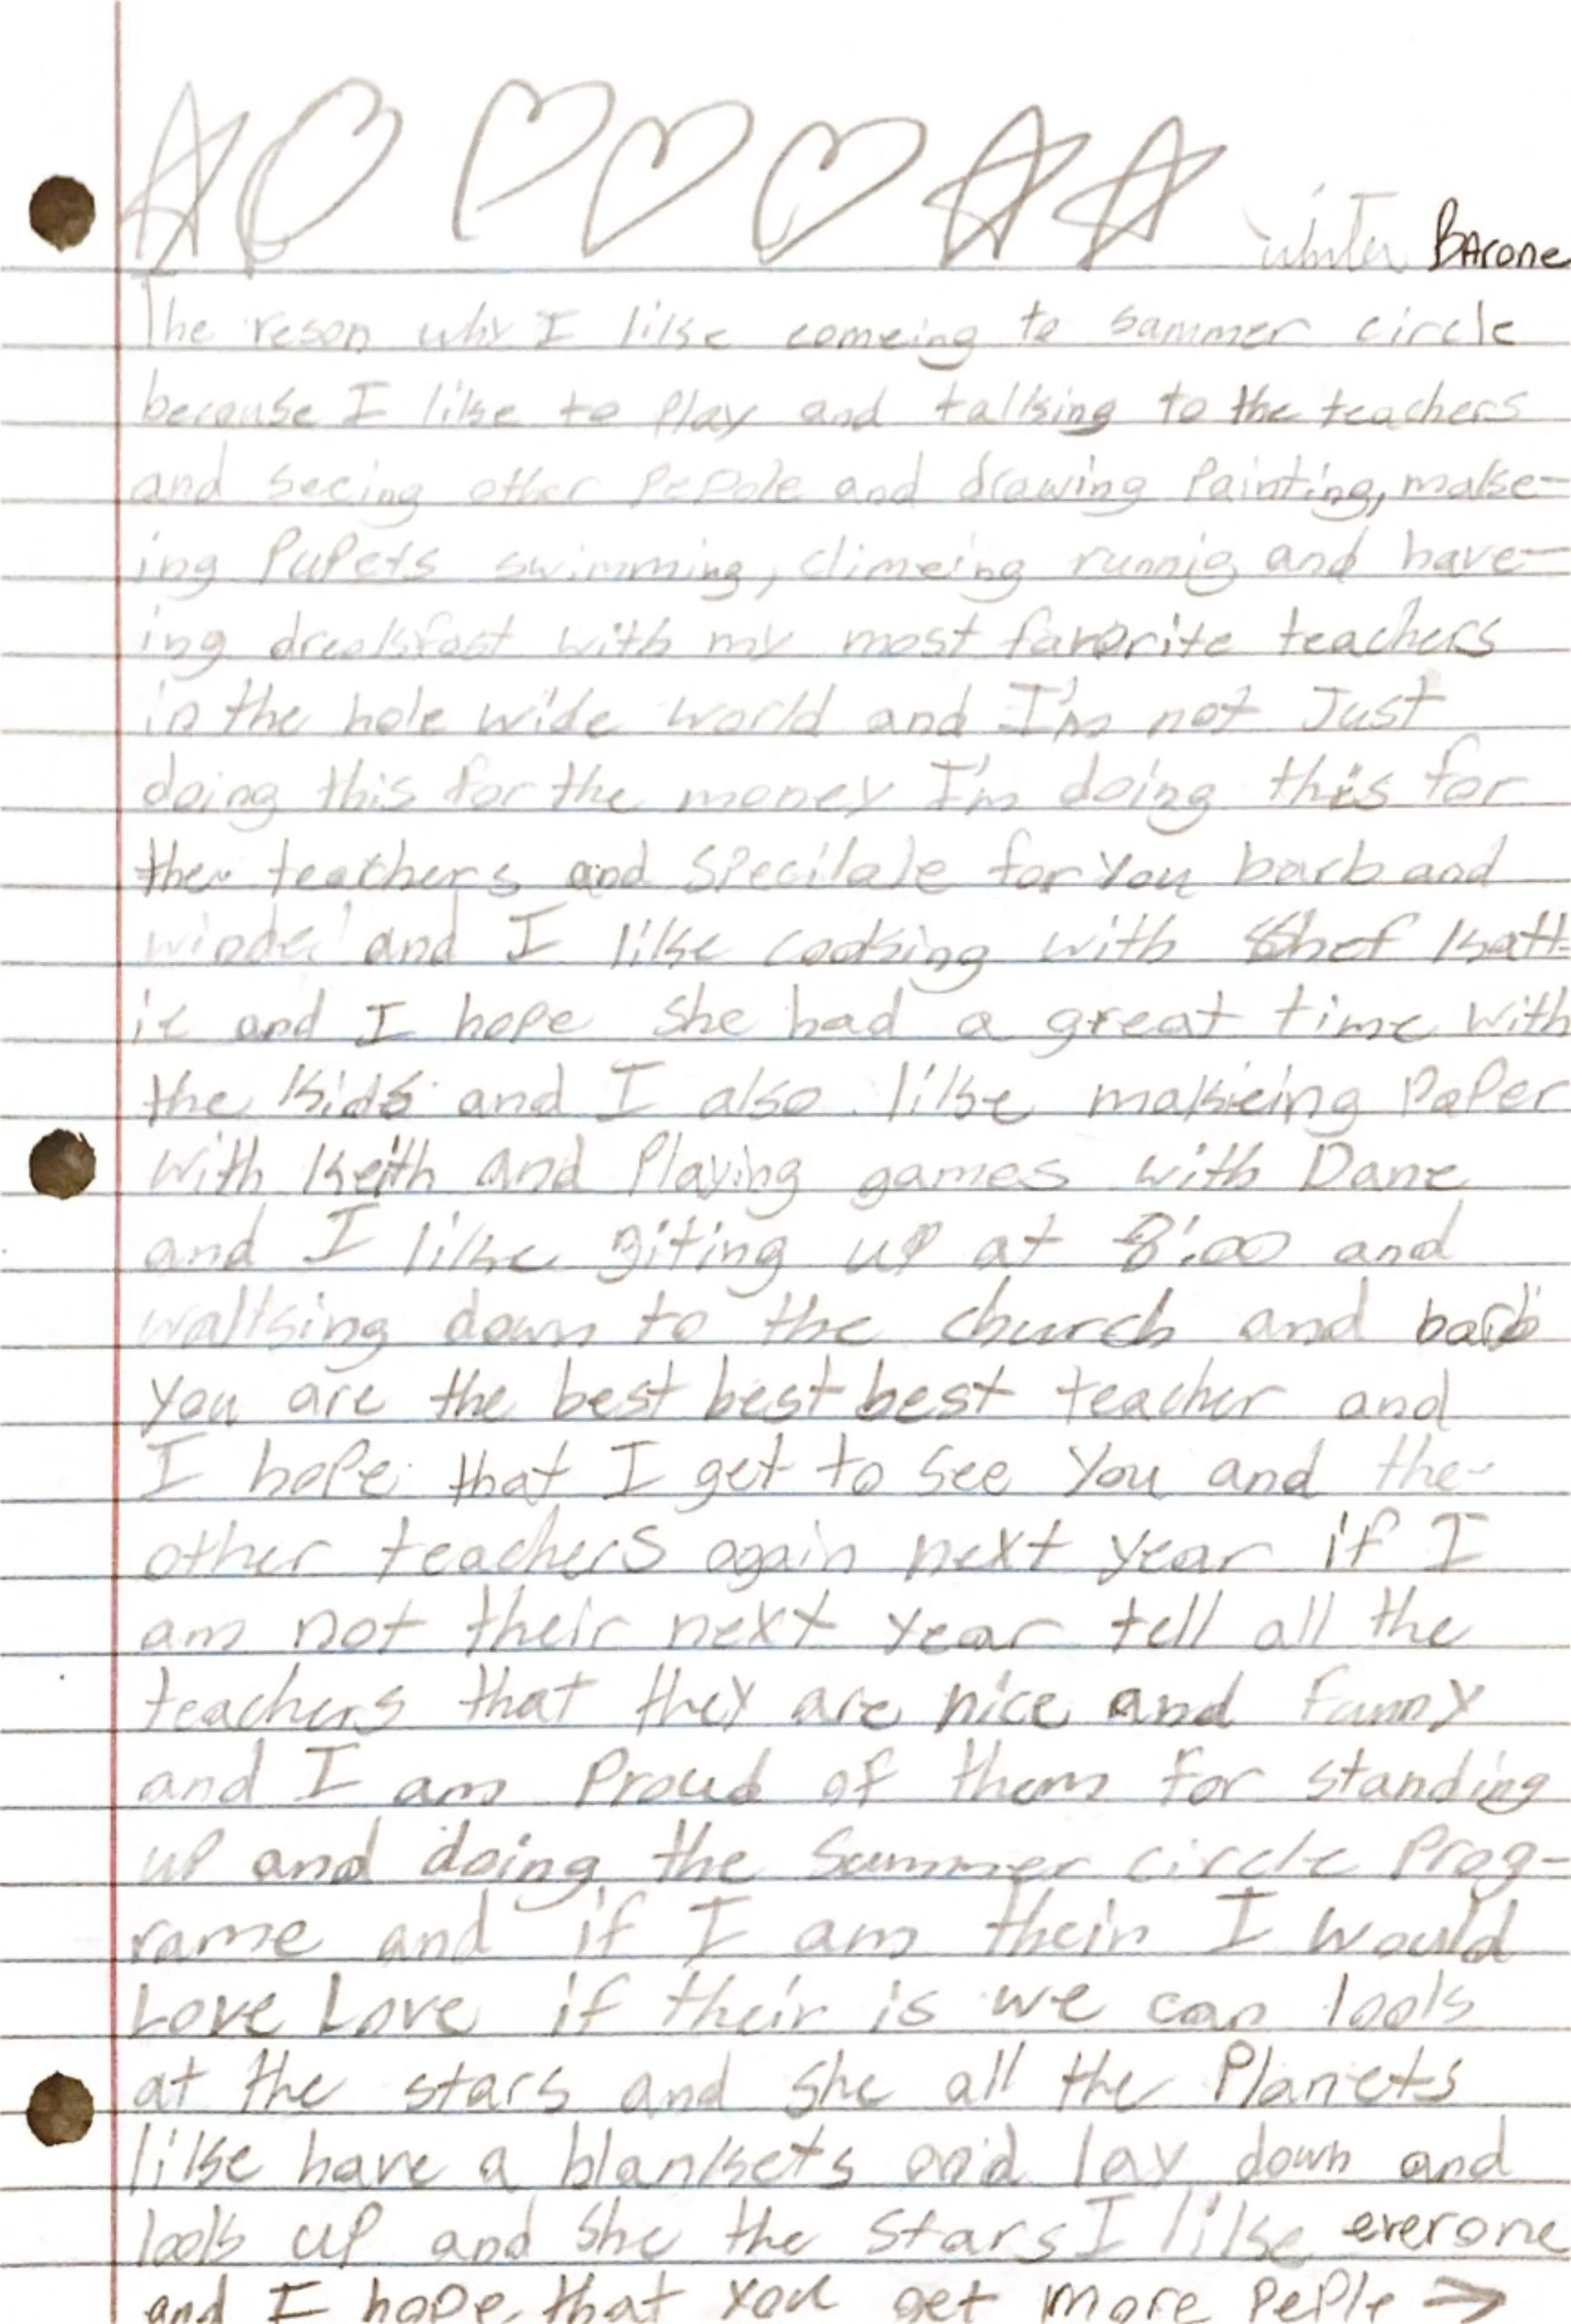 Winter BArone
The reson why I like comeing to Summer circle
because I like to Play and talking to the teachers
and seeing other PePole and drawing Painting, make-
ing PuPets swimming, climeing runnig and have-
ing dreakfast with my most favorite teachers
in the hole wide world and I'm not Just
doing this for the money I'm doing this for
the teachers and Specilale for You barb and
and I like cooking with Shef Katt-
ie and I hope she had a great time with
the Kids and I also like makeing PaPer
with Keith and Playing games with Dane
and I like giting up at 8:00 and
walking down to the church and barb
you are the best best best teacher and
I hope that I get to see You and the
other teachers again next year if I
am not their next year tell all the
teachers that they are nice and funny
and I am Proud of them for standing
up and doing the Summer circle Prog-
rame and if I am their I would
Love Love if their is we can look
at the stars and she all the Planets
like have a blankets and lay down and
look up and she the stars I like everone
and I hope that you get more PePle →